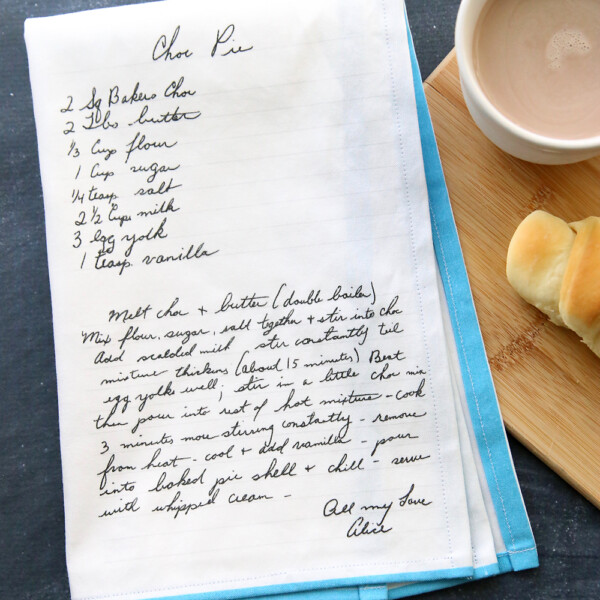 Choc Pie
2 Sq Bakers Choc
2 Tbs butter
1/3 Cup flour
1 Cup sugar
1/4 teasp salt
2 1/2 Cups milk
3 egg yolk
1 teasp. vanilla
Melt choc + butter (double boiler)
Mix flour, sugar, salt together + stir into choc
Add scalded milk stir constantly til
mixture thickens (about 15 minutes) Beat
egg yolks well; stir in a little choc mix
then pour into rest of hot mixture - cook
3 minutes more stirring constantly - remove
from heat - cool + add vanilla - pour
into baked pie shell + chill - serve
with whipped cream -
All my Love
Alice